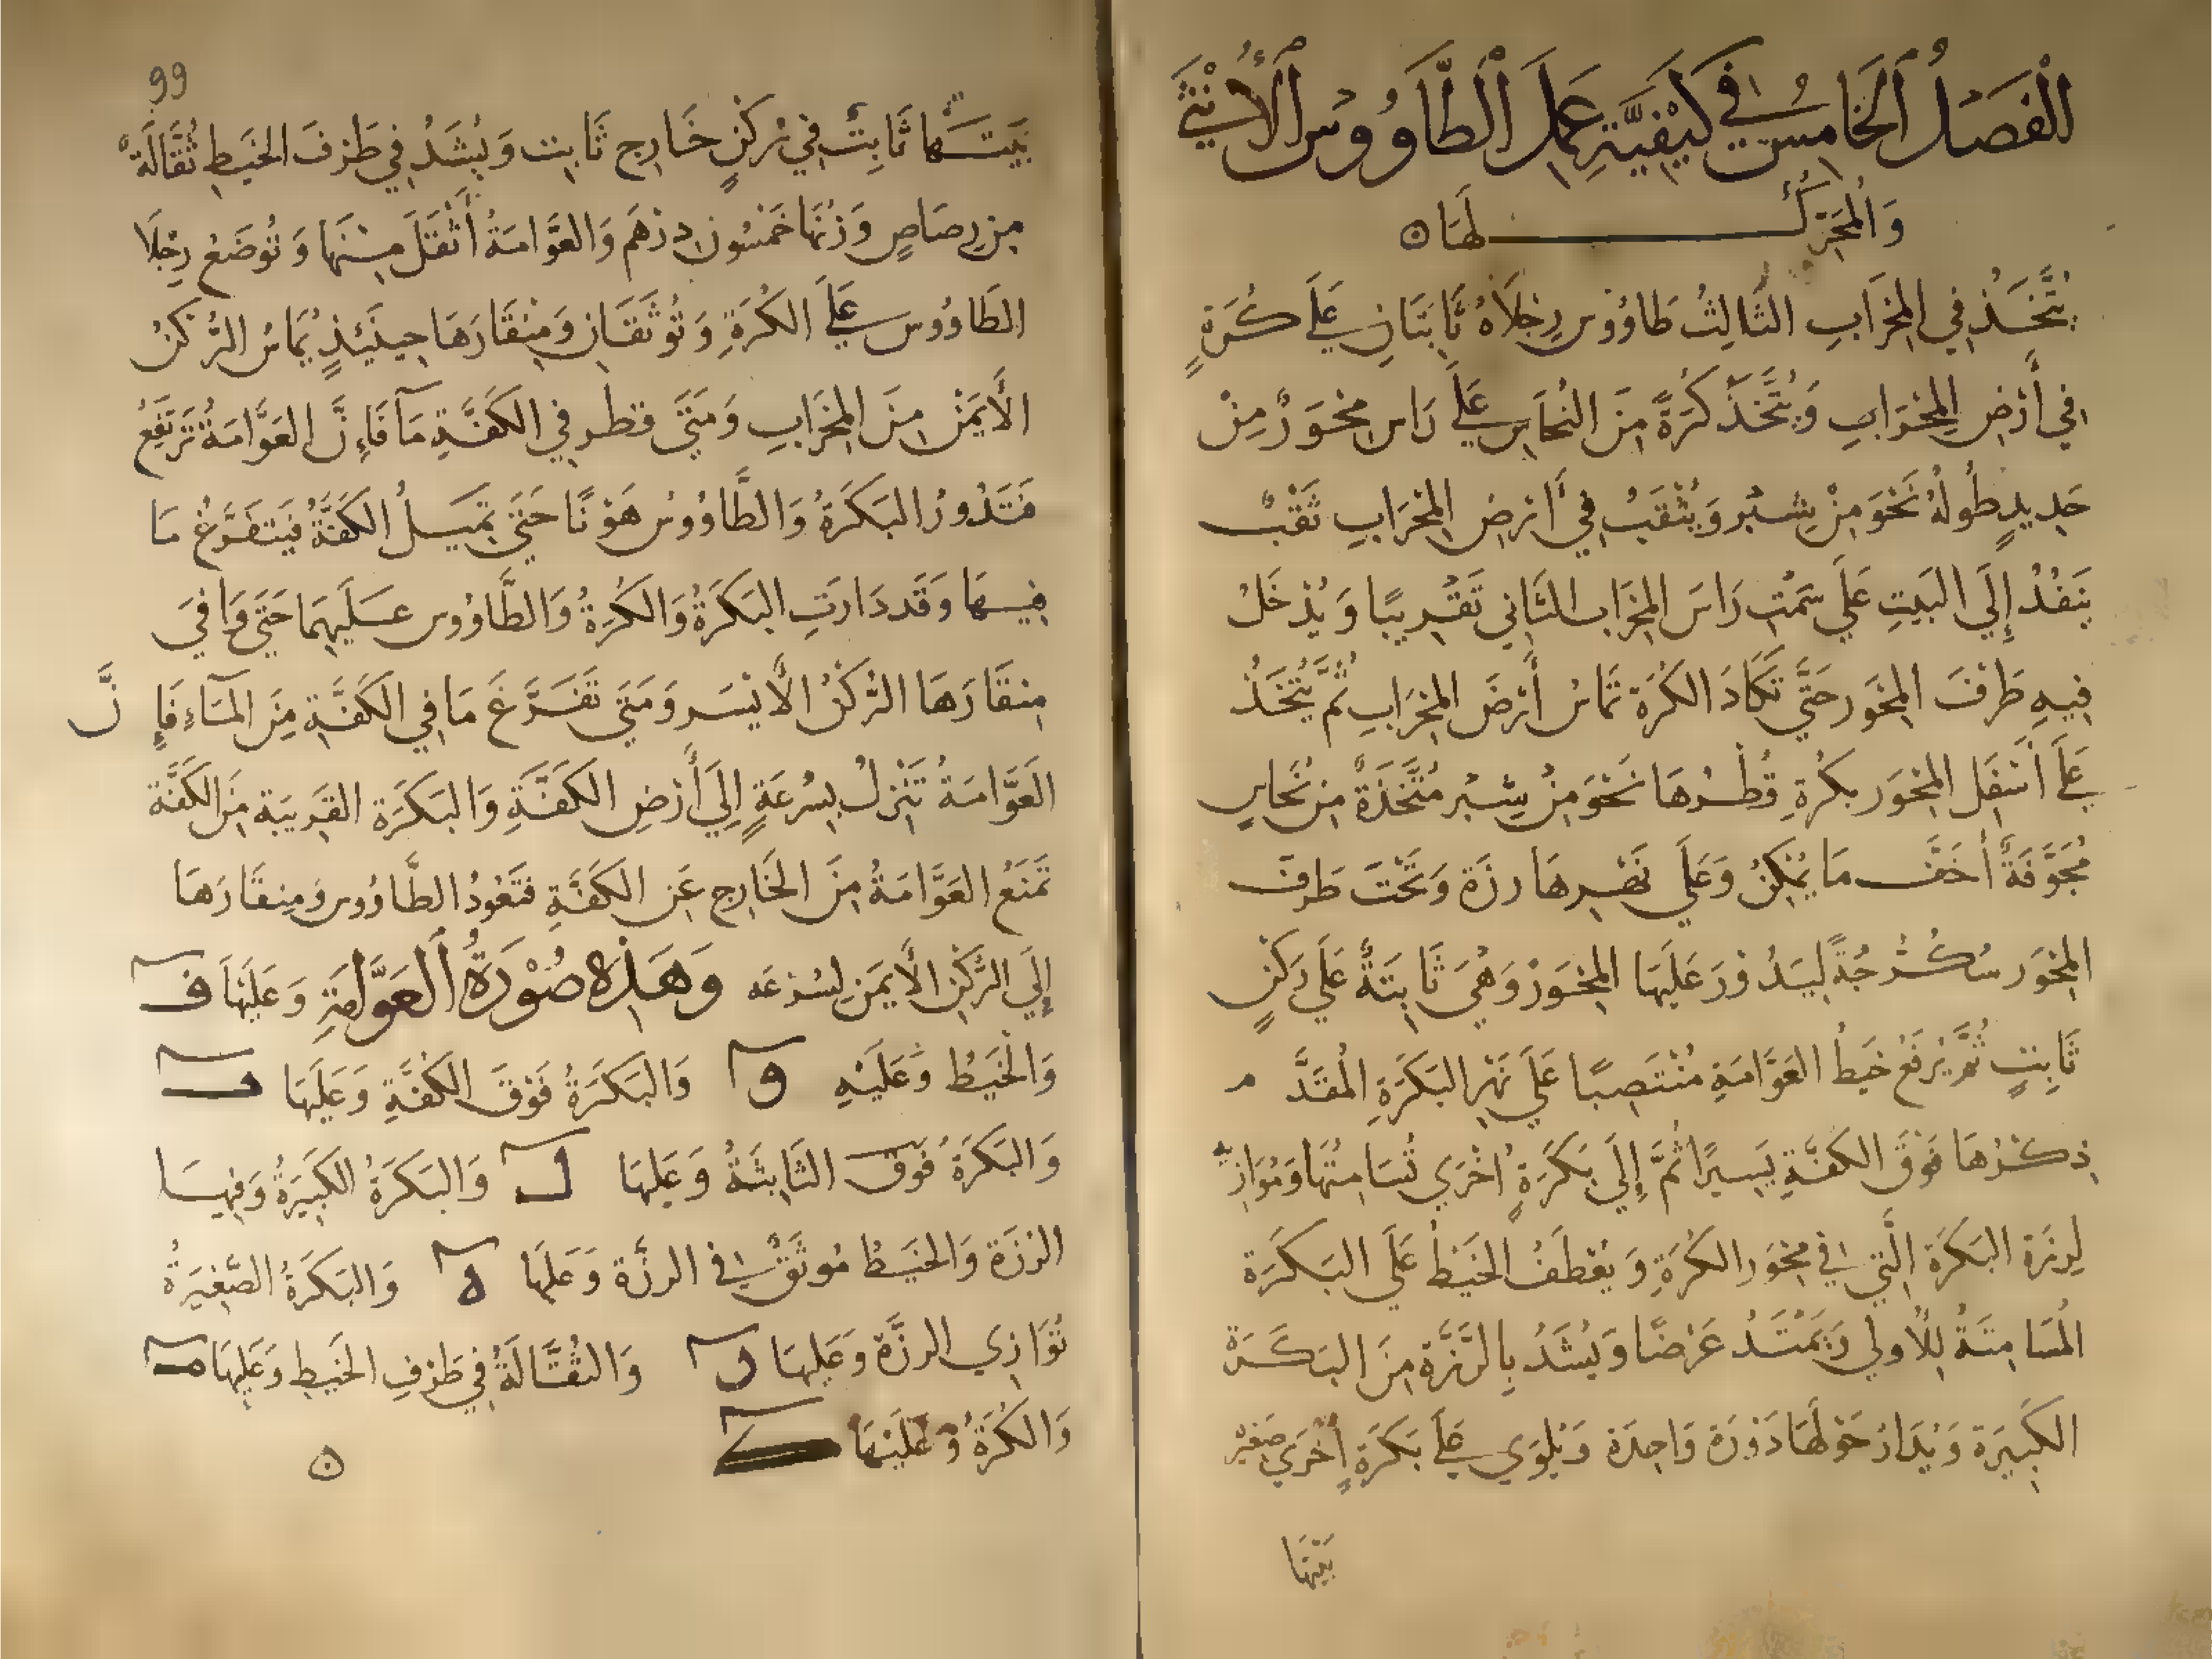 الفَصْلُ الخَامِسُ في كَيْفِيَّةِ عَمَلِ الطَّاوُوسِ الأُنْثَى
وَالمُحَرِّكُ لَهَا ه
يُتَّخَذُ فِي المِحْرَابِ الثَّالِثُ طَاوُوس رِجْلَاهُ ثَابِتَانِ عَلَى كُرَةٍ
فِي أَرْضِ المِحْرَابِ وَيُتَّخَذُ كُرَةً مِنَ النُحَاسِ عَلَى رَاس مِحْوَرٌ مِنْ
حَدِيدٍ طُولُهُ نَحْوَ مِنْ شِبْر وَيُثْقَبُ فِي أَرْضِ المِحْرَابِ ثَقْبٌ
يَنفُذُ إِلَى البَيتِ عَلَى سَمْتِ رَاسَ المِحْرَاب الثَّانِي تَقْرِيبًا وَيُدْخَلُ
فِيهِ طَرْفَ المِحْوَر حَتَّى تَكَادَ الكُرَة تَمَاسُ أَرْضَ المِحْرَابِ ثُمَّ يُتَّخَذُ
عَلَى أَسْفَل المِحْوَر بَكَرَةٍ قُطْرُهَا نَحْوَ مِنْ شِبْر مُتَّخَذَةٌ مِن نُحَاسٍ
مُجَوَّفَةٌ أَخَفَّ مَا يُمْكِنُ وَعَلَى نَهْرِهَا رزَة وَتَحْتَ طَرف
المِحْوَر سُكُرُجَةً لِيَدُورَ عَلَيْهَا المِحْوَرُ وَهِيَ ثَابِتَةٌ عَلَى رَكنٍ
ثَابِتٍ ثُمَّ يُرفَعُ خَيطُ العَوَّامَةِ مُنْتَصِبًا عَلَى نَهْرِ البَكَرَةِ المُقَدَّم
ذِكْرُهَا فَوْقَ الكَفَّةِ يَسِيرًا ثُمَّ إِلَى بَكَرَةٍ أُخْرَى تُسَامِتُهَا وَمُوَازِيَة
لِرزَة البَكَرَة الَّتِي فِي مِحْوَر الكُرَةِ وَيُعْطَفُ الخَيْطُ عَلَى البَكَرَة
المُسَامِتَةُ لِلأُولَى وَيَمْتَدُ عَرْضًا وَيُشَدُ بِالرَّزَّة مِنَ البَكَرَة
الكَبِيرَة وَيُدَارُ حَوْلَهَا دَوْرَة وَاحِدَة وَيُلوَى عَلَى بَكَرَةٍ أُخْرَى صَغِيْر
بَيْتِهَا
99
بَيْتهَا ثَابِتٌ فِي رُكْنٍ خَارِج ثَابِت وَيُشَدُ فِي طَرْفَ الخَيطِ ثُقَّالَةٌ
مِن رِصَاصٍ وَزْنُهَا خَمْسُون دِرْهَم وَالعَوَّامَةُ أَثْقَلَ مِنْهَا وَتُوضَعُ رِجْلَا
الطَاوُوس عَلَى الكُرَةِ وَتُوثَقَانِ وَمِنْقَارَهَا حِينَئِذٍ يُمَاسُ الرُّكنُ
الأَيمَنْ مِنَ المِحْرَابِ وَمَتَى قطر فِي الكَفَّةِ مَآ فَإِنَّ العَوَّامَةُ تَرْتَفِعُ
فَتَدُورُ البَكَرَةُ وَالطَّاوُوسُ هَوْنًا حَتَى تَمِيلُ الكَفَّةُ فَيَتَفَرَّغُ مَا
فِيهَا وَقَد دَارَتِ البَكَرَةُ وَالكُرَةُ وَالطَّاوُوس عَلَيهِمَا حَتَى وَافَى
مِنقَارَهَا الرُّكنُ الأَيْسَر وَمَتَى تَفَرَّغَ مَا فِي الكَفَّةِ مِنَ المَآءِ فَإِنَّ
العَوَّامَةُ تَنْزِلُ بِسُرْعَةٍ إِلَى أَرْضِ الكَفَّةِ وَالبَكَرَة القَرِيبَة مِنَ الكَفَّة
تَمنَعُ العَوَّامَةُ مِنَ الخَارِج عَنِ الكَفَّةِ فَتَعُودُ الطَّاوُوس وَمِنقَارَهَا
إِلَى الرُّكنِ الأَيمَنِ لِسُرعَه وَهَذِهِ صُوْرَةُ العَوَّامَةِ وَعَلَيْهَا ف
وَالخَيطُ وَعَلَيْهِ و وَالبَكَرَةُ فَوْقَ الكَفَّةِ وَعَلَيهَا ب
وَالبَكَرَةُ فَوْقَ الثَّابِتَةُ وَعَلَيهَا ل وَالبَكَرَةُ الكَبِيرَةُ وَفِيهَا
الرزَة وَالخَيطُ مُوثَقٌ فِي الرزَّة وَعَلَيهَا ه وَالبَكَرَةُ الصَّغِيْرَةُ
تُوَازِي الرزَّة وَعَلَيهَا ر وَالثُقَّالَةُ فِي طَرْفِ الخَيطِ وَعَلَيهَا ص
وَالكُرَةُ وَعَلَيْهَا ے ه